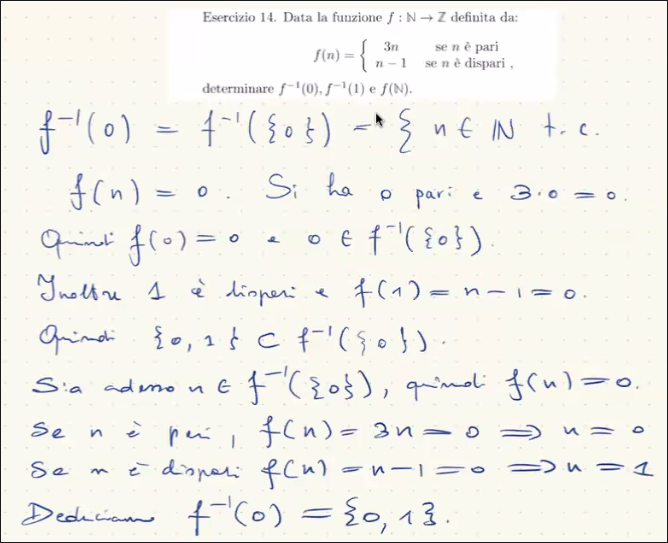 Esercizio 14. Data la funzione f : ℕ → ℤ definita da:
f(n) = { 3n se n è pari
n − 1 se n è dispari ,
determinare f⁻¹(0), f⁻¹(1) e f(ℕ).
f⁻¹(0) = f⁻¹({0}) = { n ∈ ℕ t.c.
f(n) = 0. Si ha 0 pari e 3·0 = 0.
Quindi f(0) = 0 e 0 ∈ f⁻¹({0}).
Inoltre 1 è dispari e f(1) = n−1 = 0.
Quindi {0,1} ⊂ f⁻¹({0}).
Sia adesso n ∈ f⁻¹({0}), quindi f(n) = 0.
Se n è pari, f(n) = 3n = 0 ⟹ n = 0
Se n è dispari f(n) = n−1 = 0 ⟹ n = 1
Deduciamo f⁻¹(0) = {0,1}.